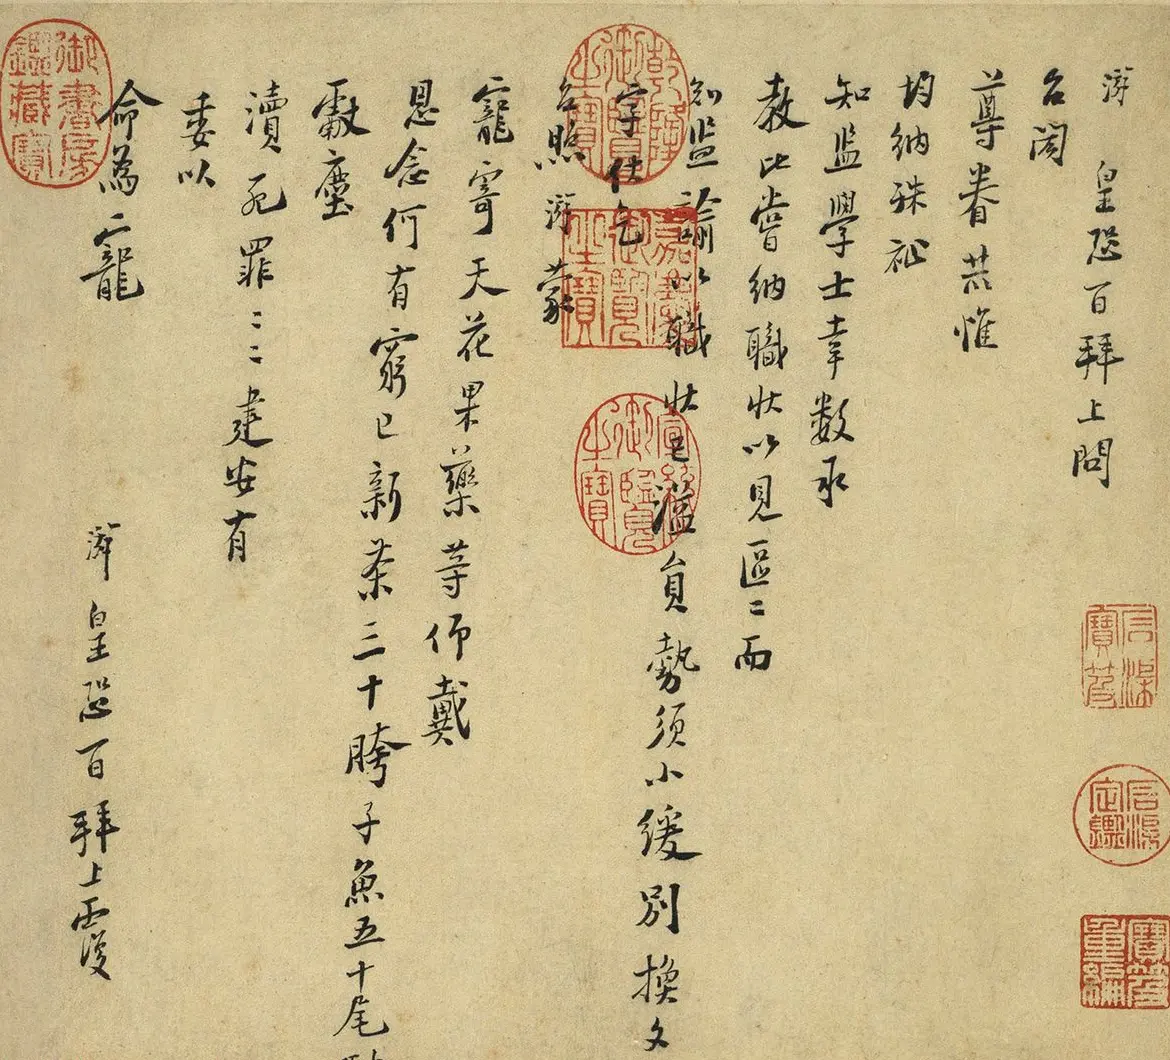 游皇恐百拜上問
台閤
尊眷共惟
均納殊祉
知監學士幸數承
教比嘗納職狀以見區〻而
知監諭以職狀已溢員勢須小緩別換文
字伏乞
台照游蒙
寵寄天花果藥等仰戴
恩念何有窮已新茶三十胯子魚五十尾
獻塵
瀆死罪〻〻建安有
委以
命為寵
游皇恐百拜上覆
石渠寶笈
石渠定鑑
寶笈重編
乾隆御覽之寶
嘉慶御覽之寶
宣統御覽之寶
御書房鑑藏寶